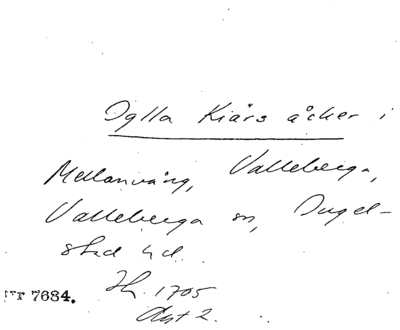 Dylla Kiärs åcker i
Mellanvång, Valleberga,
Valleberga sn, Ingel-
stad hd.
Jh. 1705
Akt 2.
Nr 7684.